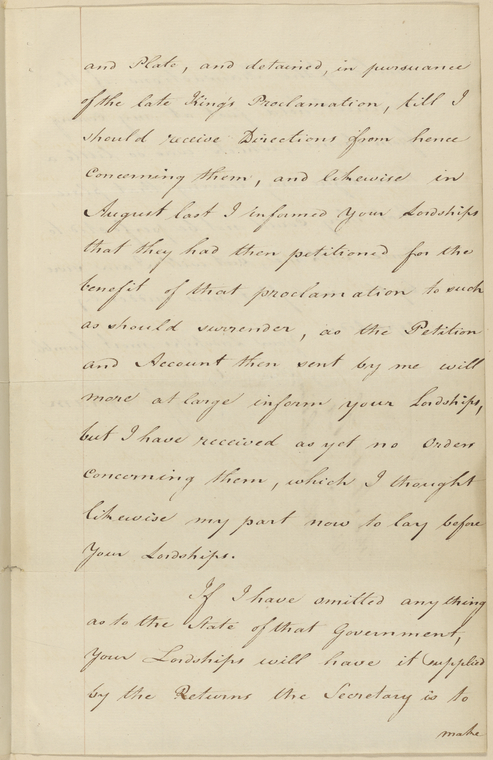 and Plate, and detained, in pursuance
of the late King's Proclamation, till I
should receive Directions from hence
Concerning them, and likewise in
August last I informed Your Lordships
that they had then petitioned for the
benefit of that proclamation to such
as should surrender, as the Petition
and Account then sent by me will
more at large inform your Lordships,
but I have received as yet no Orders
Concerning them, which I thought
likewise my part now to lay before
Your Lordships.
If I have omitted any thing
as to the State of that Government,
Your Lordships will have it supplied
by the Returns the Secretary is to
make